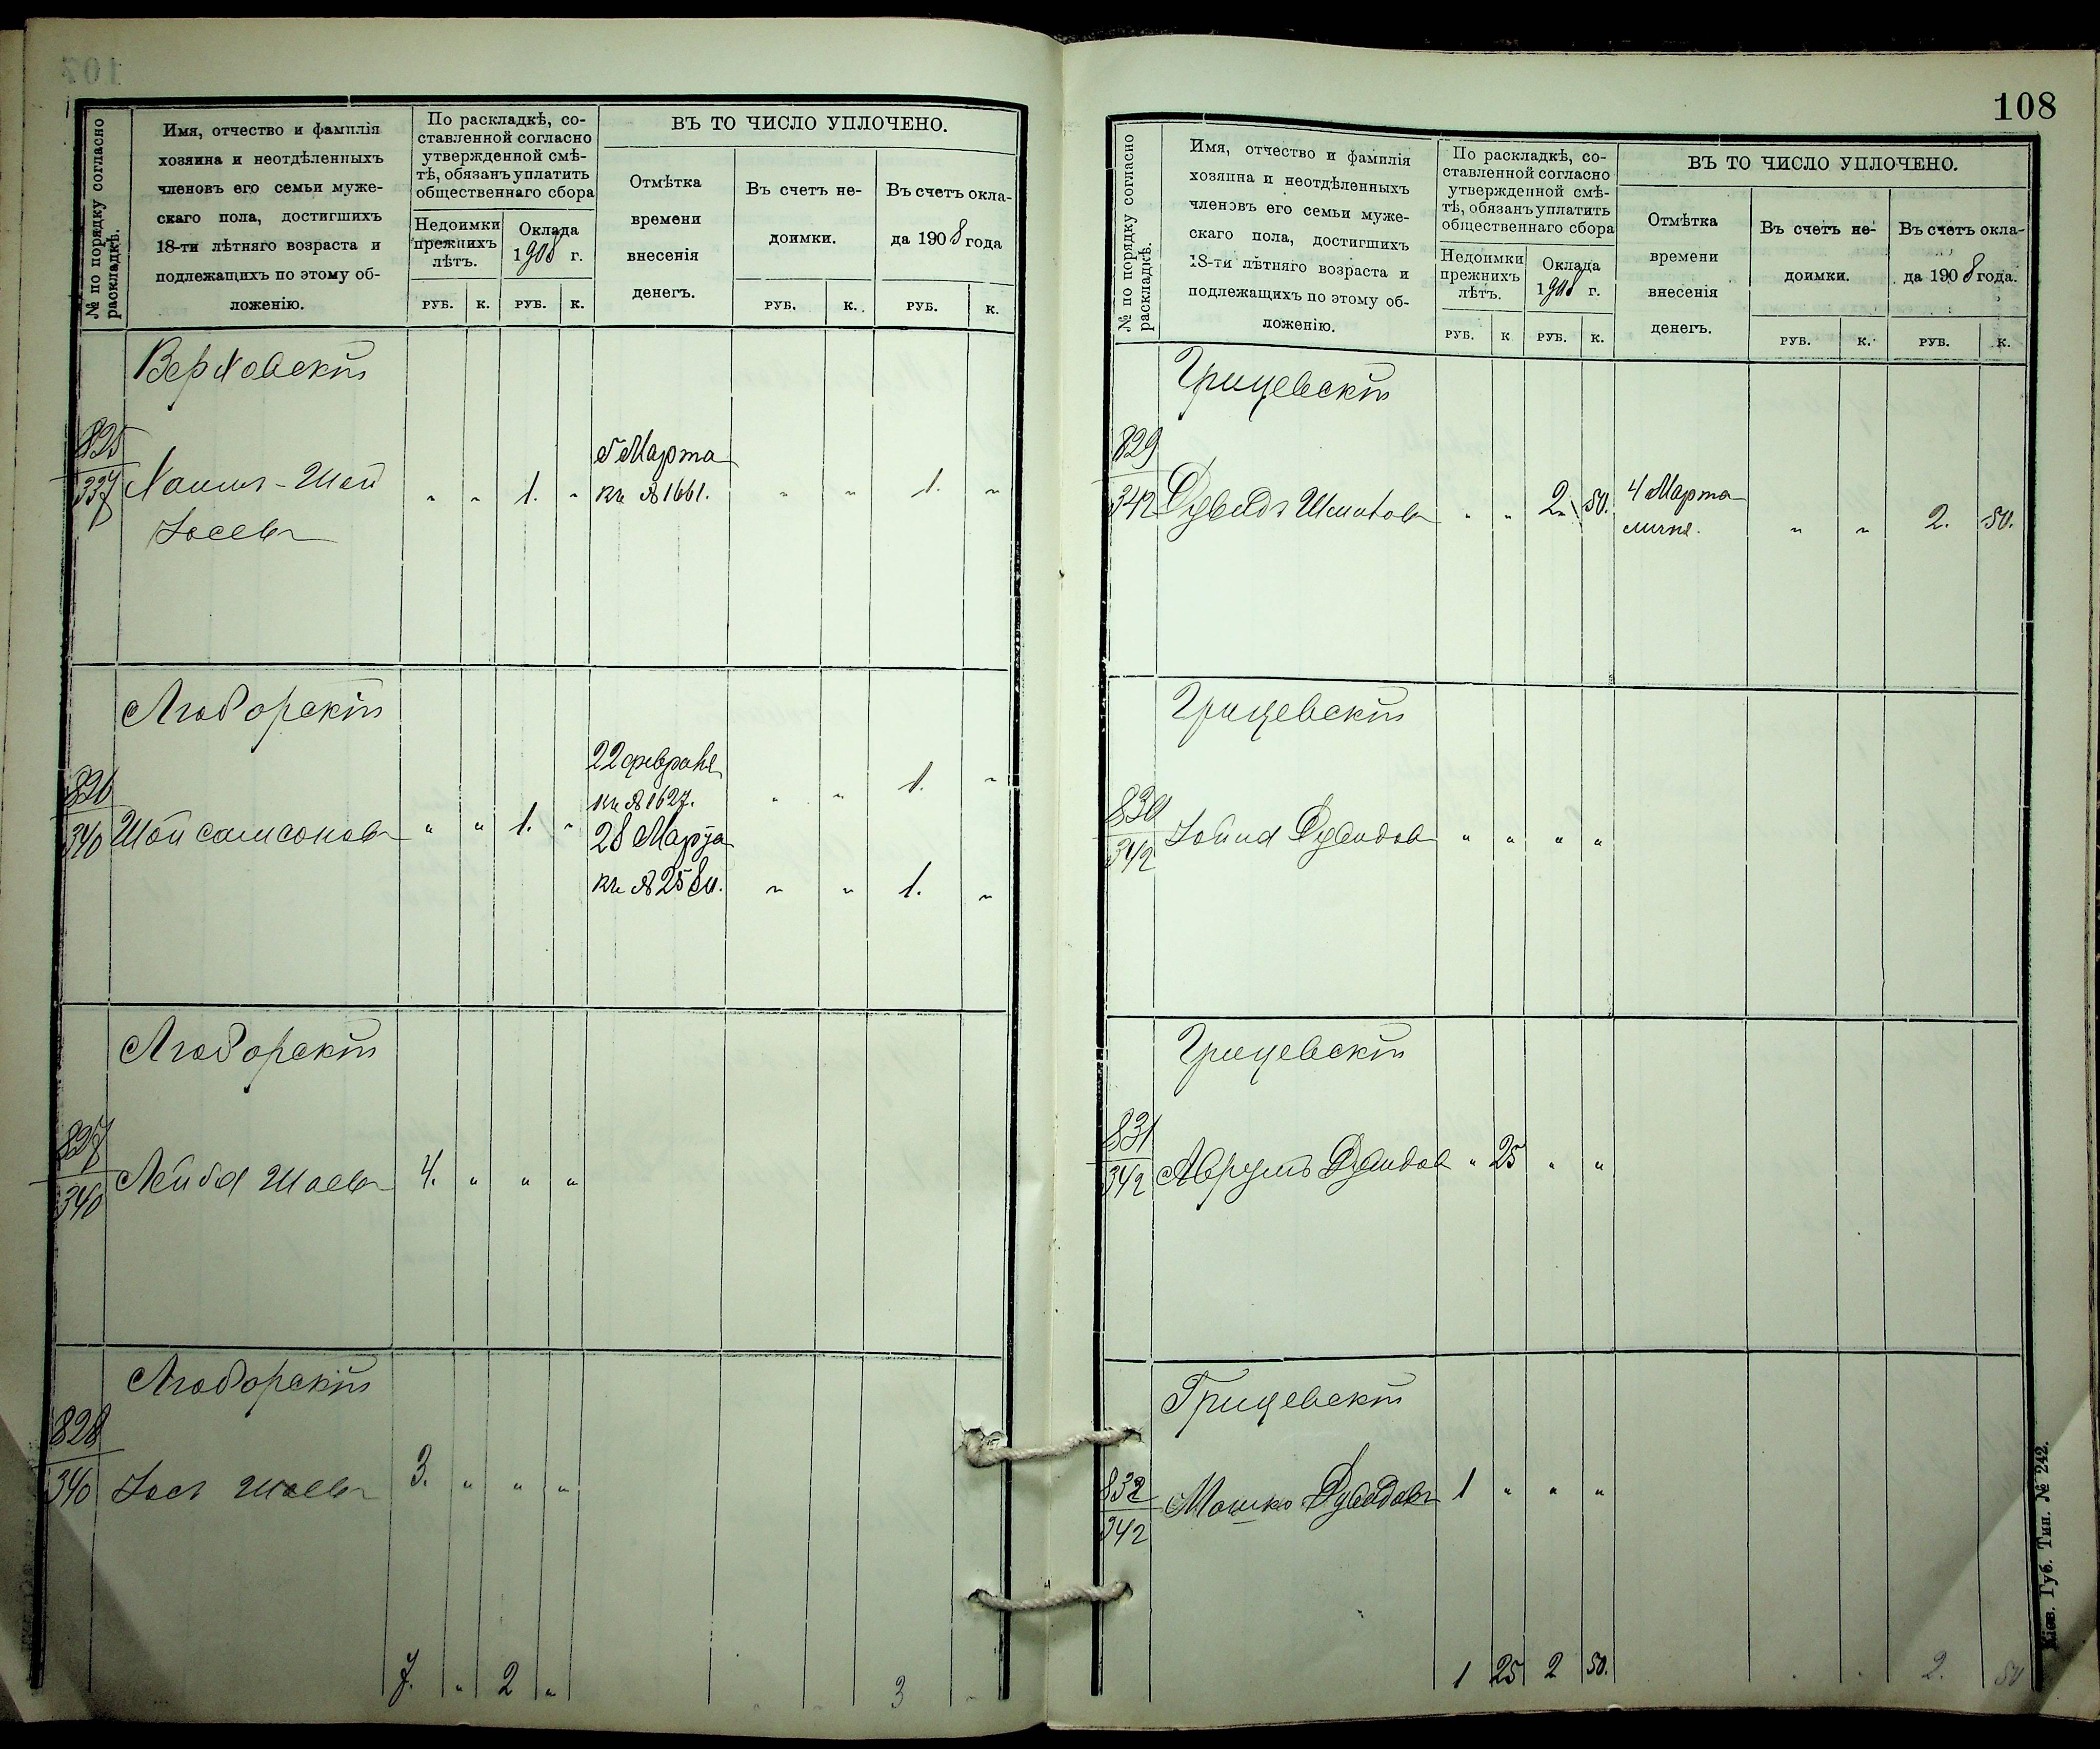 № по порядку согласно раскладкѣ.
Имя, отчество и фамилія
хозяина и неотдѣленныхъ
членовъ его семьи муже-
скаго пола, достигшихъ
18-ти лѣтняго возраста и
подлежащихъ по этому об-
ложенію.
По раскладкѣ, со-
ставленной согласно
утвержденной смѣ-
тѣ, обязанъ уплатить
общественнаго сбора
Недоимки
прежнихъ
лѣтъ.
Оклада
1908 г.
РУБ. К. РУБ. К.
ВЪ ТО ЧИСЛО УПЛОЧЕНО.
Отмѣтка
времени
внесенія
денегъ.
Въ счетъ не-
доимки.
Въ счетъ окла-
да 1908 года
РУБ. К. РУБ. К.
Верховскій
825
337
Хаимъ-Шая
Іосевъ
" " 1. "
5 Марта
къ № 1661.
" " 1. "
Люборскій
826
340
Шая Самсоновъ
" " 1. "
22 февраля
къ № 1627. " " 1. "
28 Марта
къ № 2580. " " 1. "
Люборскій
827
340
Лейба Шаевъ 4. " " "
Люборскій
828
340
Іось Шаевъ 3. " " "
7. " 2 " 3 "
108
№ по порядку согласно раскладкѣ.
Имя, отчество и фамилія
хозяина и неотдѣленныхъ
членовъ его семьи муже-
скаго пола, достигшихъ
18-ти лѣтняго возраста и
подлежащихъ по этому об-
ложенію.
По раскладкѣ, со-
ставленной согласно
утвержденной смѣ-
тѣ, обязанъ уплатить
общественнаго сбора
Недоимки
прежнихъ
лѣтъ.
Оклада
1908 г.
РУБ. К РУБ. К.
ВЪ ТО ЧИСЛО УПЛОЧЕНО.
Отмѣтка
времени
внесенія
денегъ.
Въ счетъ не-
доимки.
Въ счетъ окла-
да 1908 года.
РУБ. К. РУБ. К.
Грицевскій
829
342
Дувидъ Шмуловъ " " 2. 50.
4 Марта
лично.
" " 2. 50.
Грицевскій
830
342
Дувидов " " " "
Грицевскій
831
342
Аврумъ Дувидов " 25 " "
Грицевскій
832
342
Мошко Дувидовъ 1 " " "
1 25 2 50. 2. 50
Кіев. Губ. Тип. № 242.